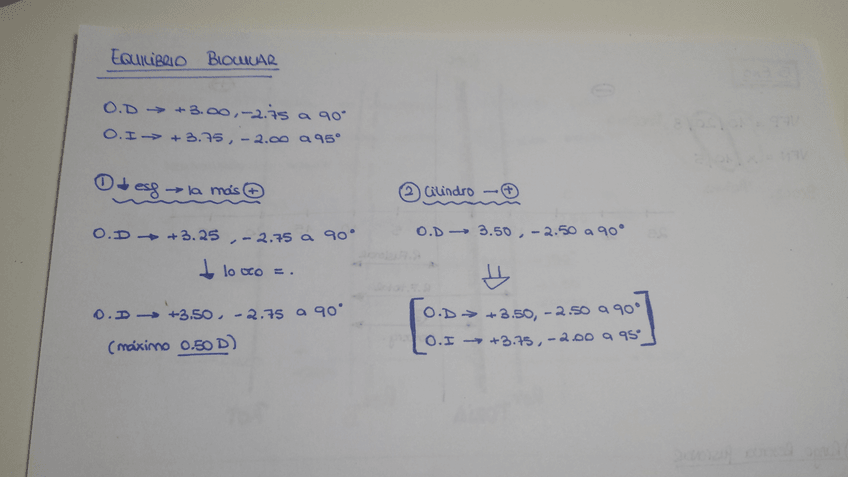 EQUILIBRIO BINOCULAR
O.D → +3.00, -2.75 a 90°
O.I → +3.75, -2.00 a 95°
① ↓ esf → la más ⊕
O.D → +3.25, -2.75 a 90°
↓ 10 =.
O.D → +3.50, -2.75 a 90°
(máximo 0.50 D)
② Cilindro → ⊕
O.D → 3.50, -2.50 a 90°
⇓
O.D → +3.50, -2.50 a 90°
O.I → +3.75, -2.00 a 95°